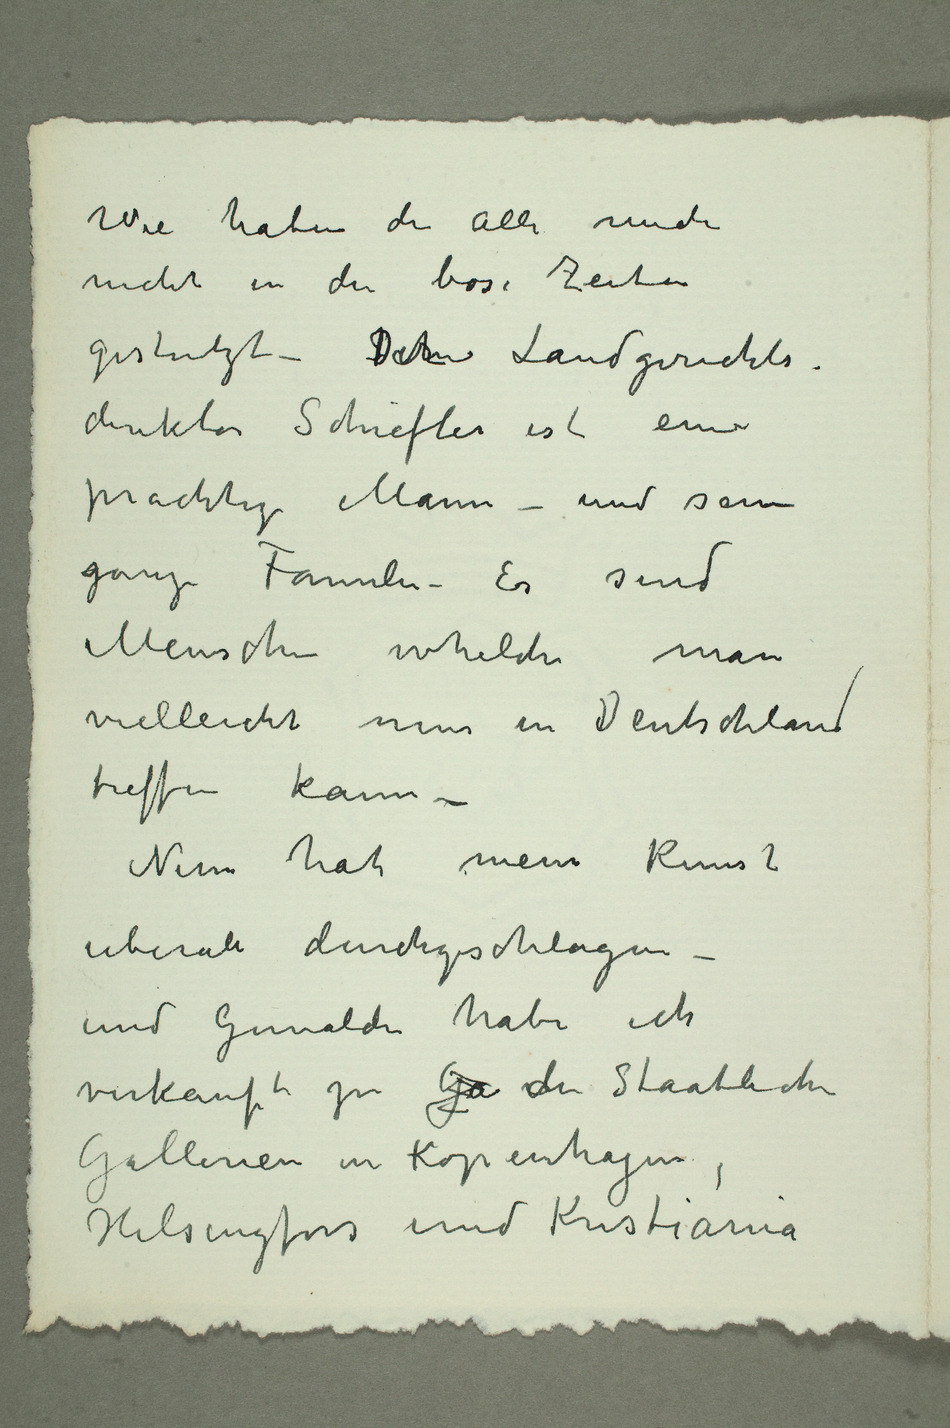 Wie haben die alle mich
nicht in die böse Zeiten
gestützt – Der Landgerichts-
direktor Schiefler ist ein
prächtige Mann – und sein
ganze Familie – Es sind
Menschen whelche man
vielleicht nur in Deutschland
treffen kann –
Nun hat meine Kunst
uberall durchgeschlagen –
und Gemälde habe ich
verkauft zu die Staatliche
Gallerien in Kopenhagen,
Helsingfors und Kristiania